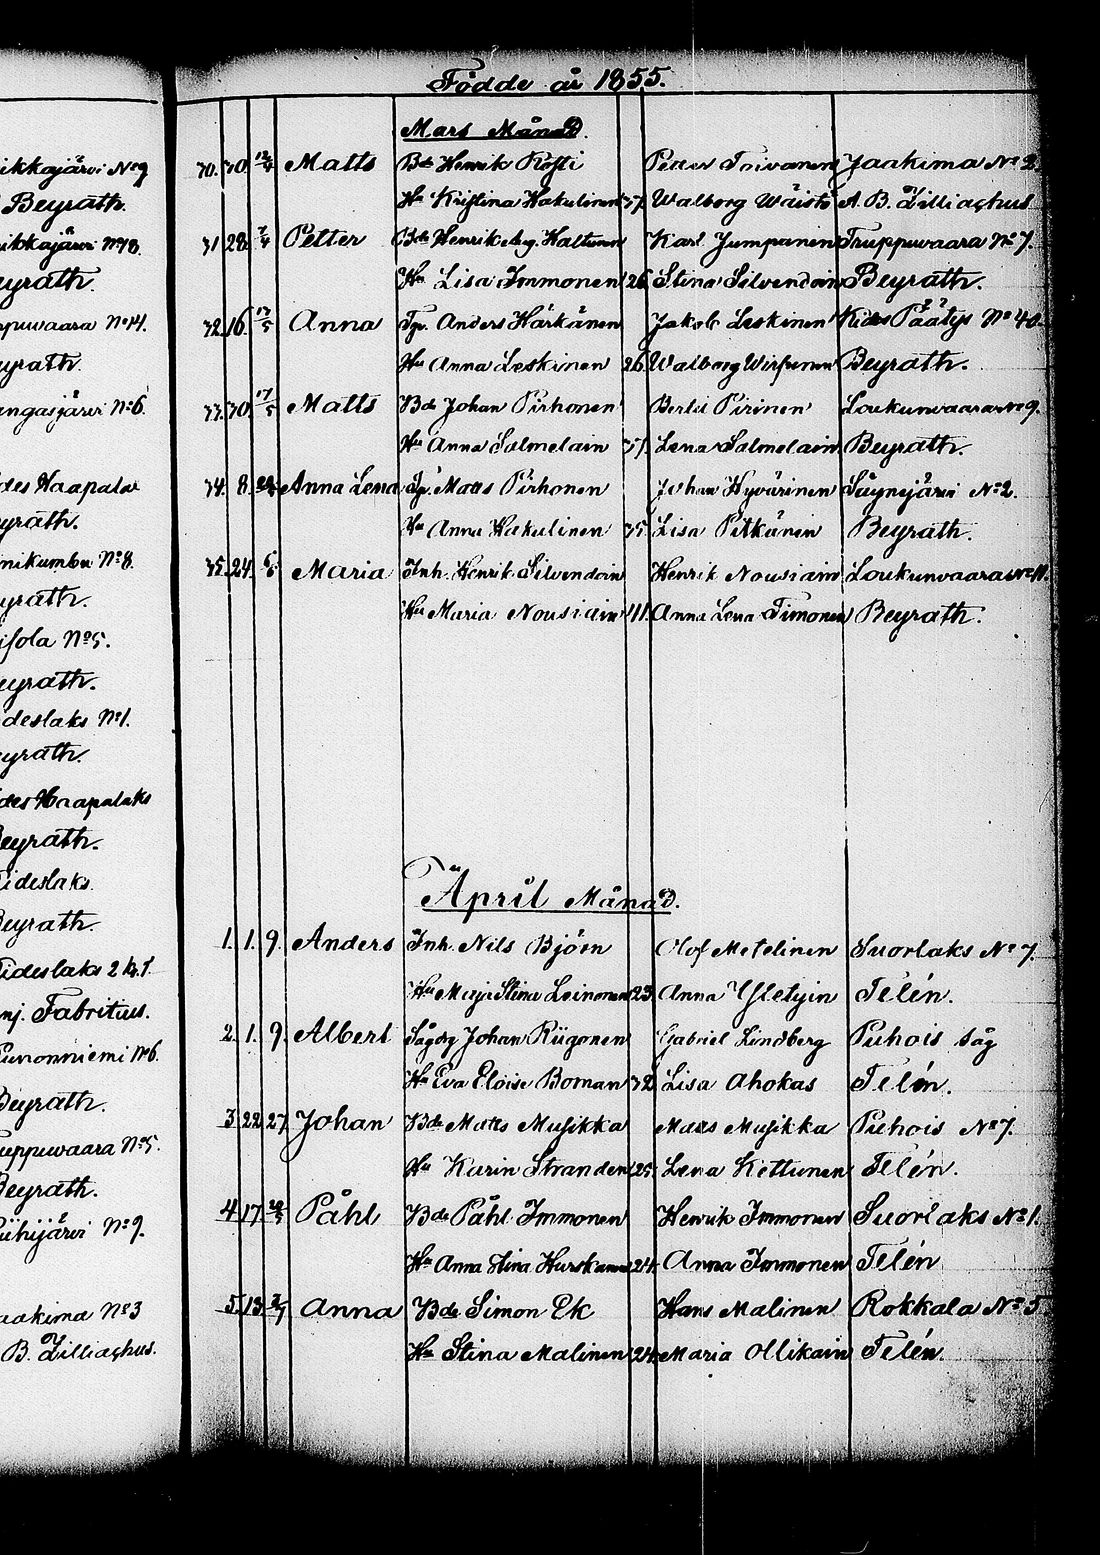 ikkajärvi No 9
Beyrath.
ikkajärvi No 8.
eyrath.
ppuwaara No 14.
yrath.
angasjärvi No 6.
des Haapala
yrath.
nikumbu No 8.
yrath.
isola No 5.
eyrath.
ideslaks No 1.
eyrath.
des Haapalaks
Beyrath.
Tideslaks.
Beyrath.
Tideslaks 2 & 1.
nj. Fabritius.
No 6.
Beyrath.
uppuwaara No 5.
Beyrath.
No 9.
aakima No 3
B. Zilliachus.
Födde år 1855.
Mars Månad.
30. 30. Matts Bde Henrik Kosti Petter Toivanen Jaakima No 2.
Hu Kristina Hakulinen 37. Walborg Wäistö A. B. Zilliachus
31 28 7/4 Petter Bde Henrik Aug. Haltunen Karl Jumpanen Truppuwaara No 7.
Hu Lisa Immonen 26 Stina Silvendoin Beyrath.
32. 16. 17/5 Anna Tp. Anders Härkänen Jakob Leskinen Kides Päätys No 40.
Hu Anna Leskinen 26 Walborg Beyrath.
33. 30. 17/5 Matts Bde Johan Pirhonen Bertil Pirinen Loukunvaara No 9.
Hu Anna Salmelain 37. Lena Salmelain Beyrath.
34. 8. Anna Lena Tp. Matts Pirhonen Johan Hyvärinen No 2.
Hu Anna Hakulinen 35. Lisa Pitkänin Beyrath.
35. 24. 6/6 Maria Inh. Henrik Silvendoin Henrik Nousiain Loukunvaara No 11.
Hu Maria Nousiain 41. Anna Lena Timonen Beyrath.
April Månad.
1. 1. 9. Anders Inh. Nils Björn Olof Metelinen Suorlaks No 7.
Hu Maja Stina Leinonen 23. Anna Telén.
2. 1. 9. Albert Sågdg Johan Riigonen Gabriel Lindberg Puhois såg
Hu Eva Eloise Boman 32. Lisa Ahokas Telén.
3. 22. 27. Johan Bde Matts Musikka Matts Musikka Puhois No 7.
Hu Karin Stranden 25. Lena Kettunen Telén.
4. 17. Påhl Bde Påhl Immonen Henrik Immonen Suorlaks No 1.
Hu Anna Stina Hurskainen 24. Anna Immonen Telén
5. 13. Anna Bde Simon Ek Hans Malinen Rokkala No 5.
Hu Stina Malinen 24. Maria Ollikain Telén.